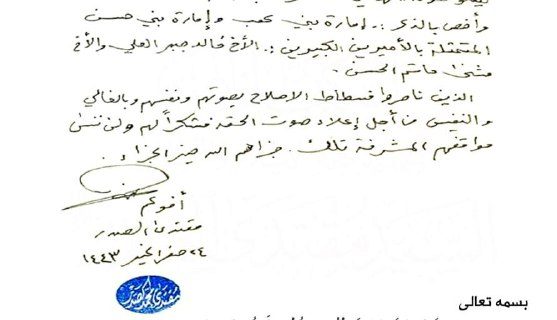 وأخص بالذكر :. إمارة بني كعب وإمارة بني حسن
المتمثلة بالأميرين الكبيرين :. الأخ خالد جبر العلي والأخ
مثنى حاتم الحسن .
الذين ناصروا فسطاط الاصلاح بصوتهم ونفسهم وبالغالي
والنفيس من أجل إعلاء صوت الحق فشكراً لهم ولن ننسى
مواقفهم المشرفة تلك . جزاهم الله خير الجزاء .
أخوكم
مقتدى الصدر
٢٤ صفر الخير ١٤٤٣
بسمه تعالى